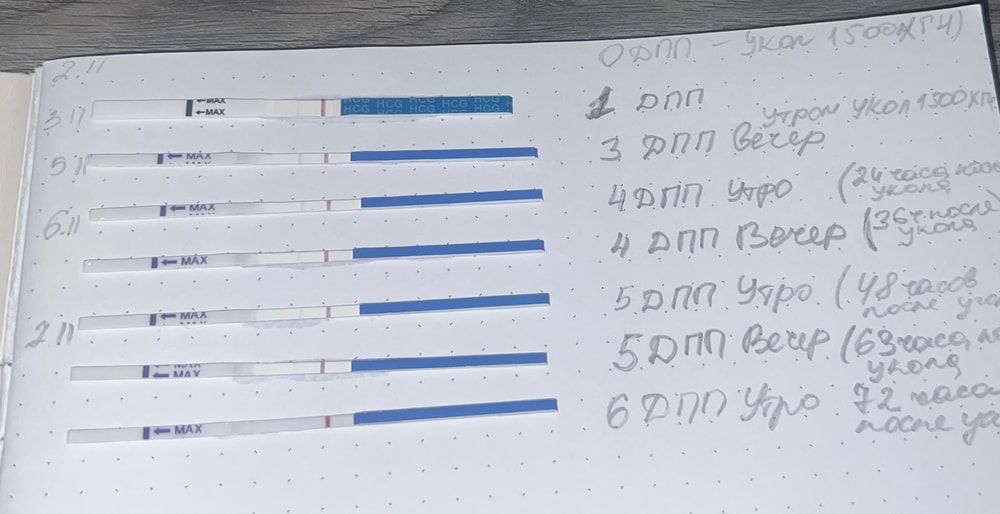 2.11
0 ДПП - Укол 1500ХГЧ)
3.11
← MAX
← MAX
HCG HCG HCG HCG HCG
HCG HCG HCG HCG
1 ДПП
утром укол 1500
5.11
← MAX
3 ДПП Вечер
← MAX
4 ДПП Утро (24 часа после
укола
6.11
← MAX
4 ДПП Вечер (36ч после
укола
← MAX
5 ДПП Утро (48 часов
после
7.11
← MAX
5 ДПП Вечер (63 часа
укола
← MAX
6 ДПП Утро 72 часа
после